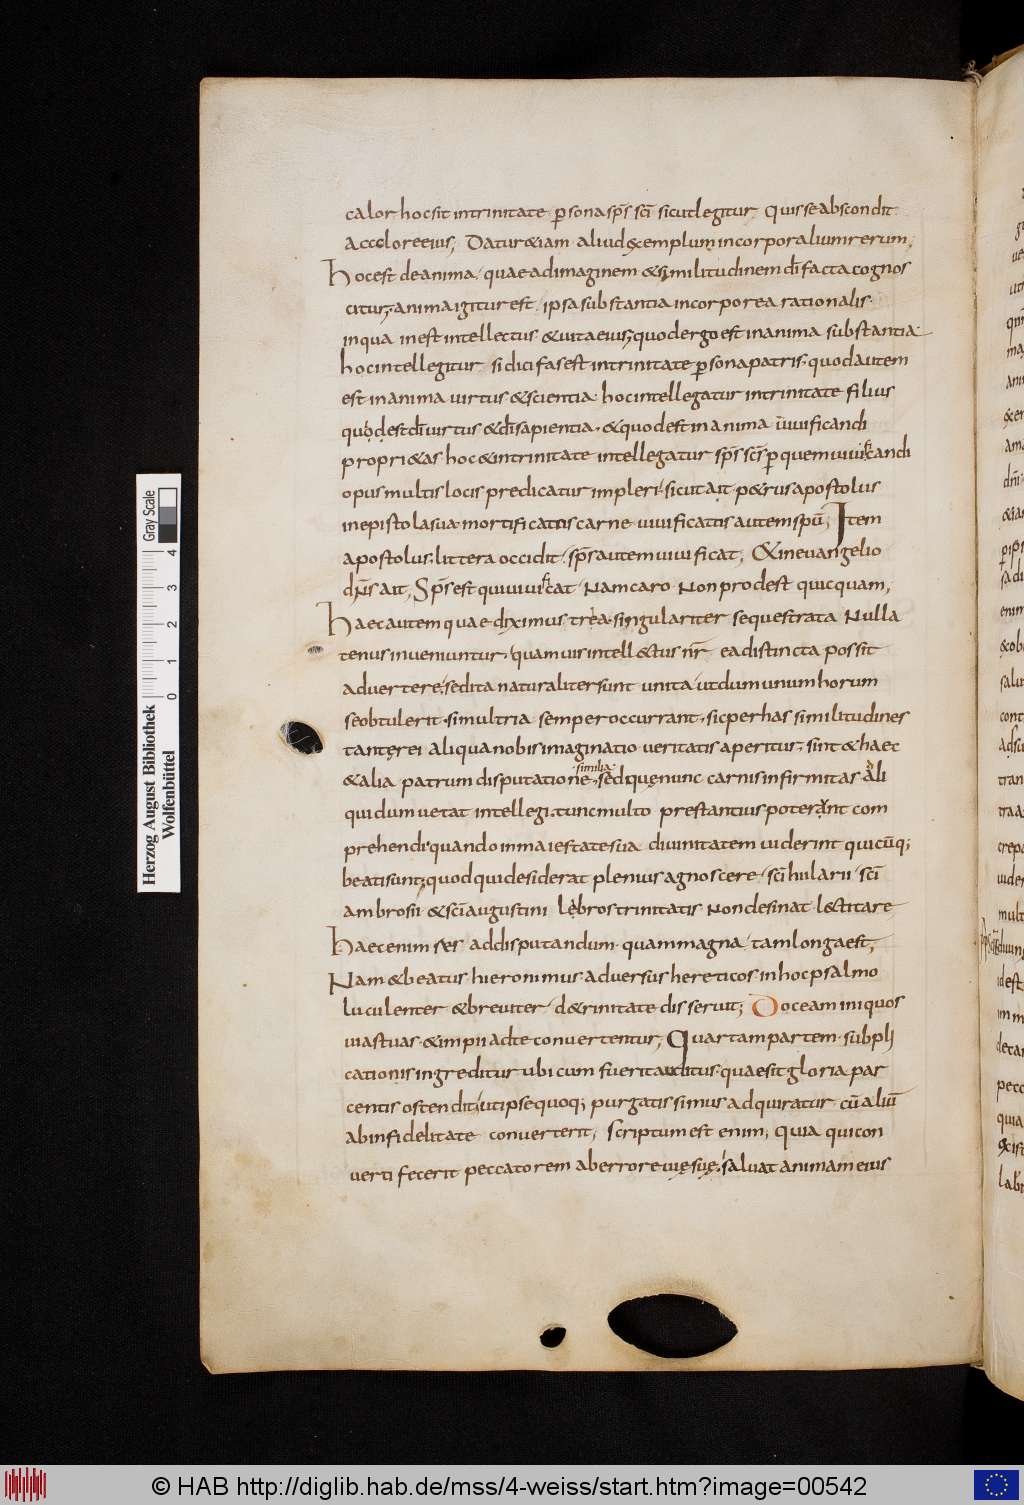 calor hoc sit in trinitate persona sp̄s sc̄i sicut legitur quis se abscondit
a colore eius; Datur &iam aliud exemplum incorporalium rerum,
hoc est de anima quae ad imaginem & similitudinem dī facta cognos
citur; anima igitur est ipsa substantia incorporea rationalis.
in qua inest intellectus & uita eius; quod ergo est in anima substantia
hoc intellegitur si dici fas est in trinitate persona patris. quod autem
est in anima uirtus & scientia. hoc intellegatur in trinitate filius
quod est dī uirtus & dī sapientia. & quod est in anima uiuificandi
propri&as hoc & in trinitate intellegatur sp̄s sc̄s per quem uiuificandi
opus multis locis predicatur impleri. sicut ait p&rus apostolus
in epistola sua mortificatus carne uiuificatus autem spū; Item
apostolus; littera occidit sp̄s autem uiuificat; & in euangelio
dn̄s ait; Sp̄s est qui uiuificat Nam caro Non prodest quicquam;
haec autem quae diximus tria. singulariter sequestrata Nulla
tenus inueniuntur. quamuis intell&tus nr̄ ea distincta possit
aduertere; sed ita naturaliter sunt unita ut dum unum horum
se obtulerit. simul tria semper occurrant. sic per has similitudines
tantę rei aliqua nobis imaginatio ueritatis aperitur; sunt & haec
& alia patrum disputatione similia. sed quę nunc carnis infirmitas ali
quidum uetat intellegi. tunc multo prestantius poterint com
prehendi quando in maiestate sua diuinitatem uiderint quicūq;
beati sunt; quod qui desiderat plenius agnoscere sc̄i hilarii sc̄i
ambrosii & sc̄i augustini libros trinitatis Non desinat l&titare
haec enim res ad disputandum quam magna tam longa est;
Nam & beatus hieronimus aduersus hereticos in hoc psalmo
luculenter & breuiter d&rinitate disseruit; Doceam iniquos
uias tuas & impii ad te conuertentur; Quartam partem suppli
cationis ingreditur ubi cum fuerit auditus. quae sit gloria par
centis ostendit. ut ipse quoq; purgatissimus adquiratur cū aliū
ab infidelitate conuerterit; scriptum est enim; quia qui con
uerti fecerit peccatorem ab errore uię suę. saluat animam eius
Herzog August Bibliothek
Wolfenbüttel
0 1 2 3 4
Gray Scale
© HAB http://diglib.hab.de/mss/4-weiss/start.htm?image=00542